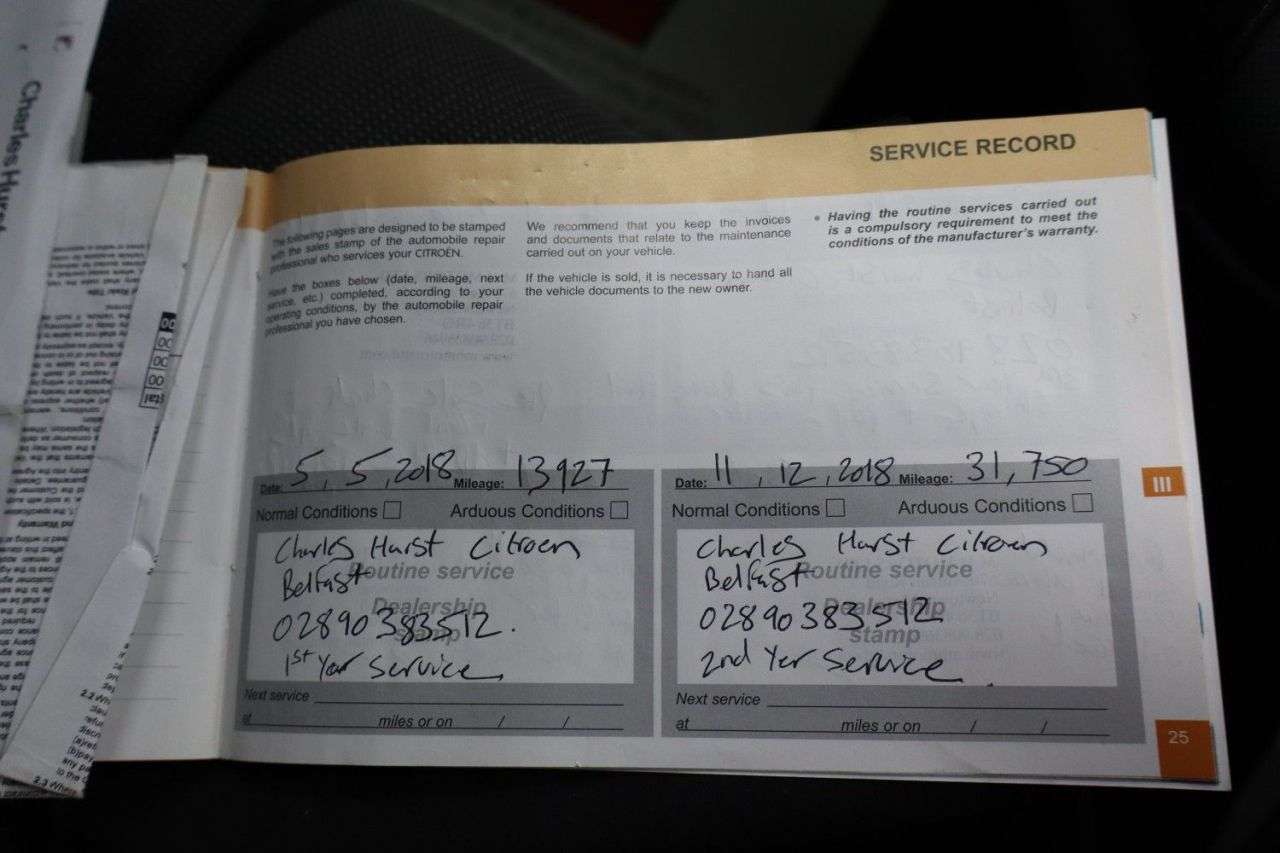 Charles Hurst
SERVICE RECORD
The following pages are designed to be stamped
with the sales stamp of the automobile repair
professional who services your CITROËN.
Have the boxes below (date, mileage, next
service, etc.) completed, according to your
operating conditions, by the automobile repair
professional you have chosen.
We recommend that you keep the invoices
and documents that relate to the maintenance
carried out on your vehicle.
If the vehicle is sold, it is necessary to hand all
the vehicle documents to the new owner.
• Having the routine services carried out
is a compulsory requirement to meet the
conditions of the manufacturer's warranty.
Date: 5, 5, 2018 Mileage: 13927
Normal Conditions Arduous Conditions
Charles Hurst Citroen
Routine service
Belfast
Dealership
stamp
02890383512.
1st Year Service
Next service
at miles or on / /
Date: 11, 12, 2018 Mileage: 31,750
Normal Conditions Arduous Conditions
Charles Hurst Citroen
Routine service
Belfast
Dealership
stamp
02890383512
2nd Yer Service
Next service
at miles or on / /
III
25